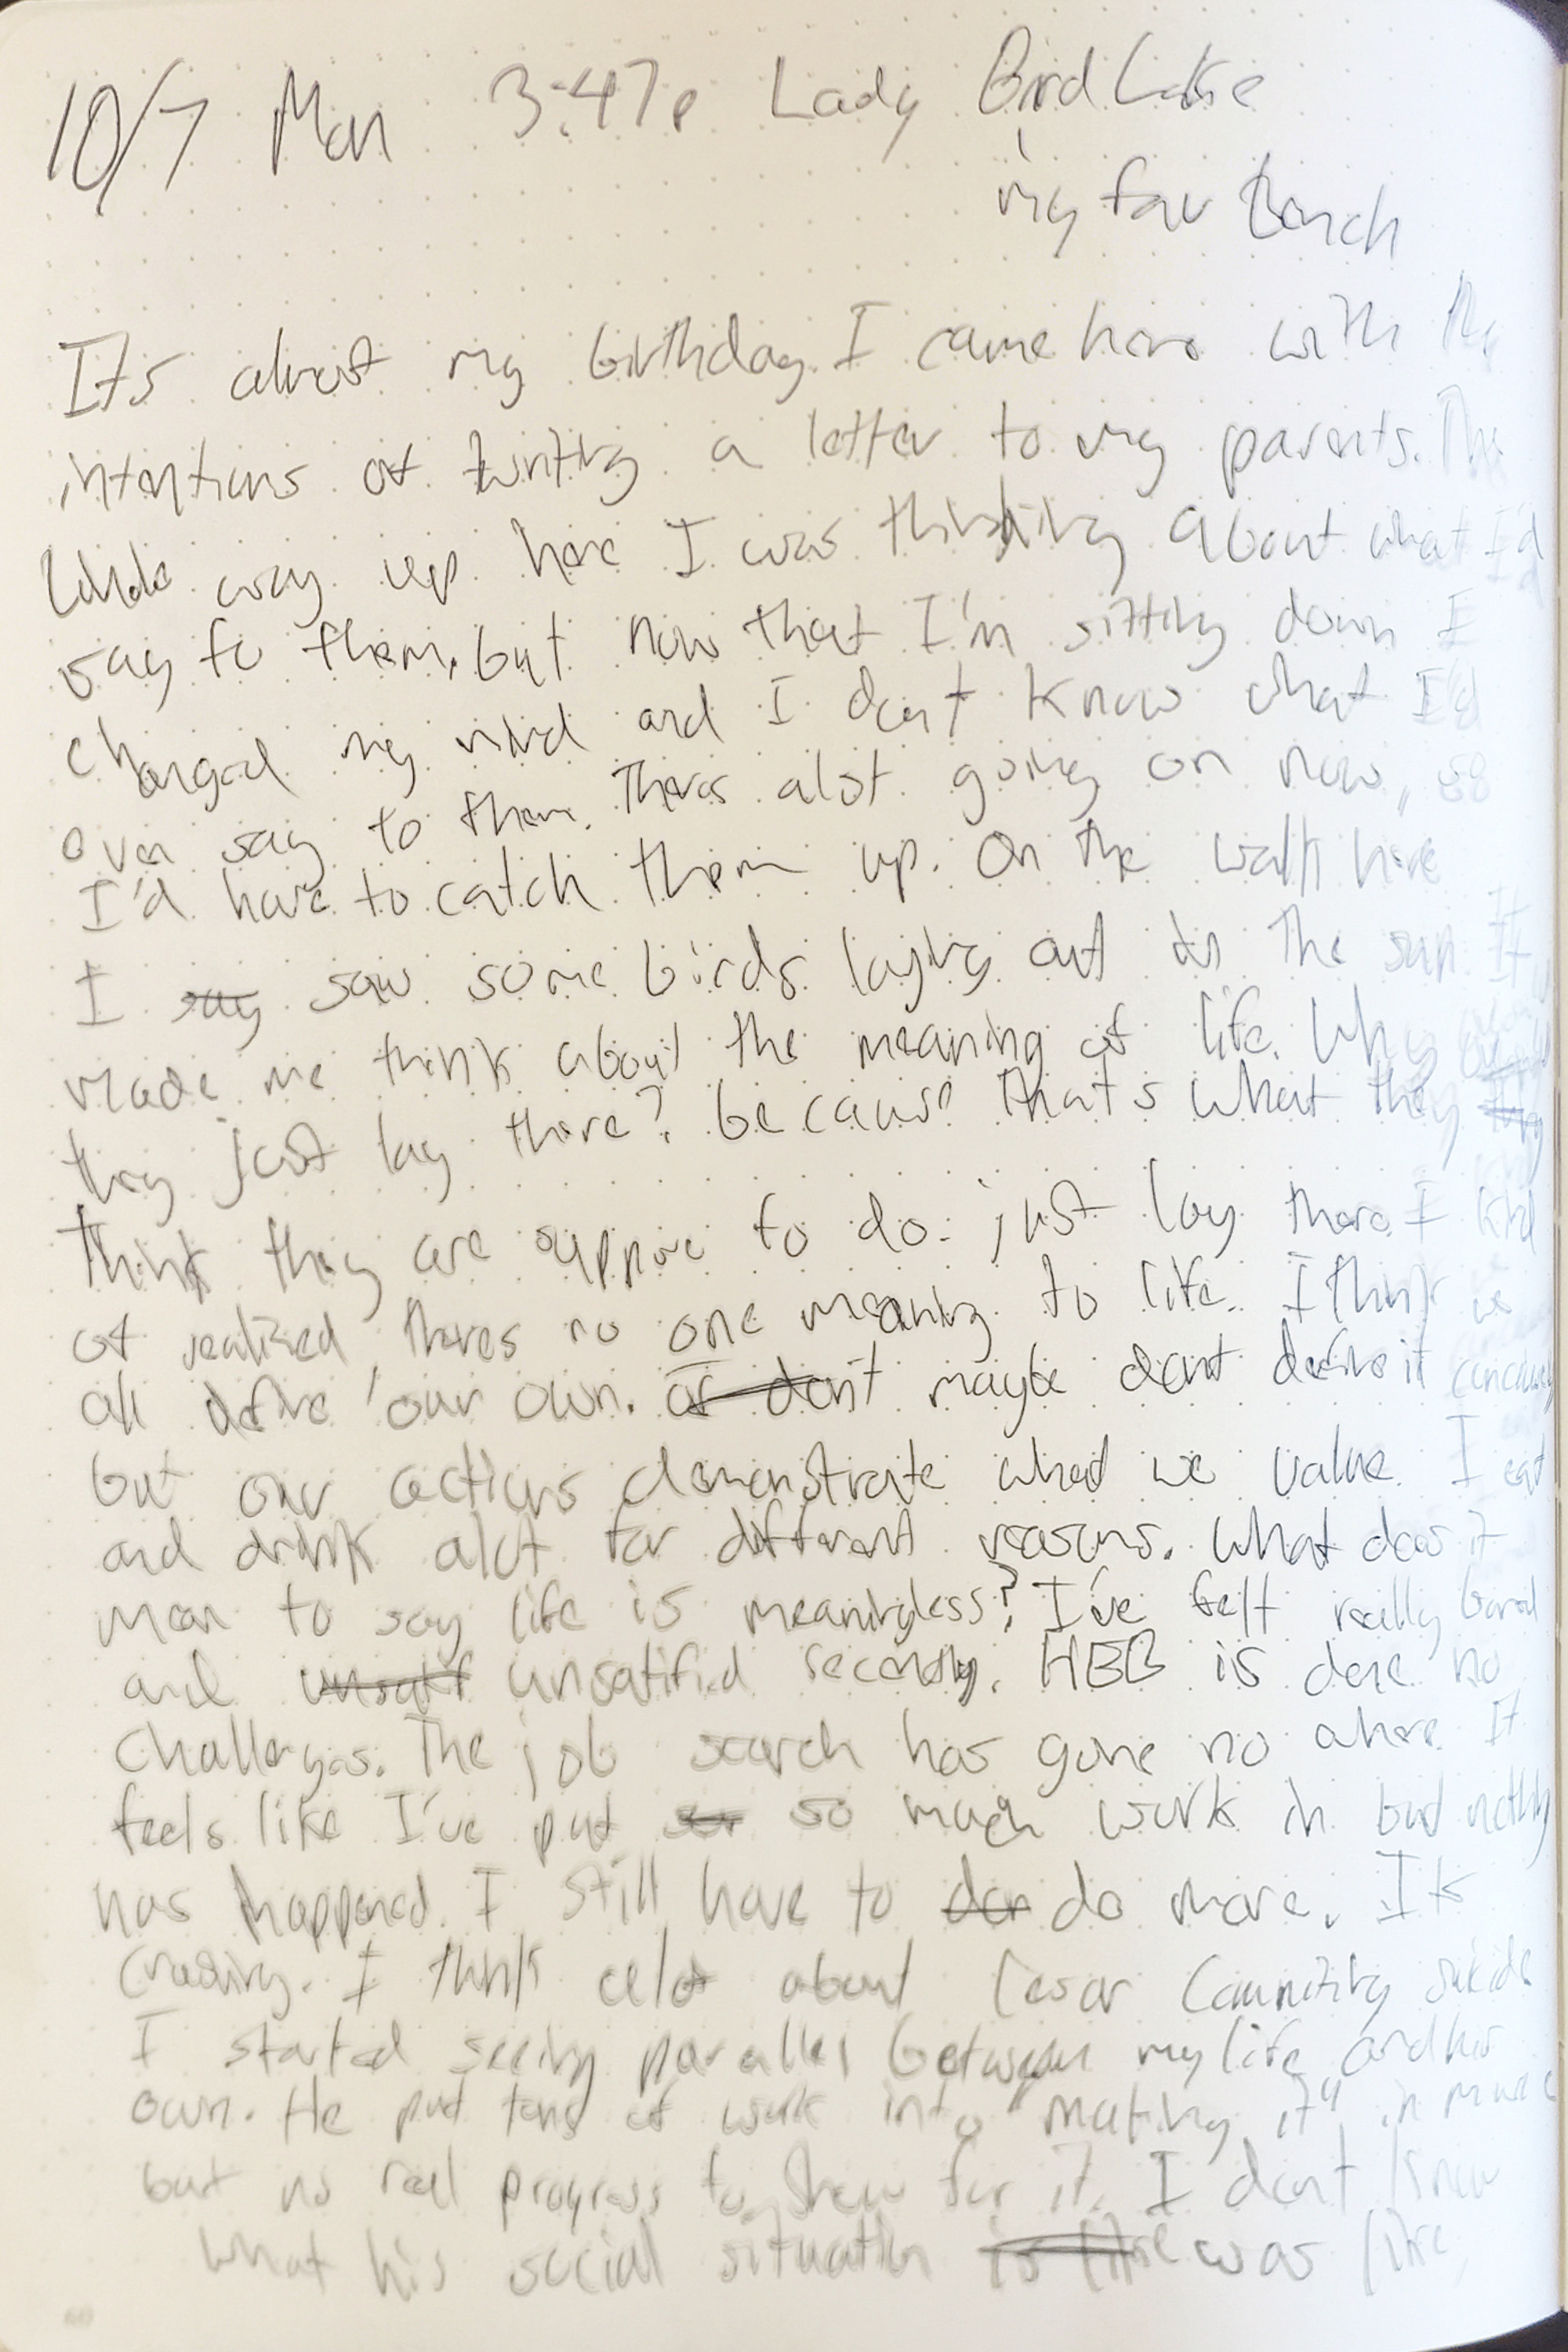 10/7 Mon 3:47p Lady Bird Lake
my fav bench
Its almost my birthday. I came here with the
intentions of writing a letter to my parents. The
whole way up here I was thinking about what I'd
say to them, but now that I'm sitting down I
changed my mind and I dont know what I'd
even say to them. Theres alot going on now, so
I'd have to catch them up. On the walk here
I say saw some birds laying out in the sun It
made me think about the meaning of life. Why
they just lay there? because that's what they they
think they are suppose to do. just lay there. I kind
of realized, theres no one meaning to life. I think we
all define our own. or dont maybe dont define it
but our actions demonstrate what we value. I eat
and drink alot for different reasons. What does it
mean to say life is meaningless? I've felt really bored
and unsatif unsatified recently. HEB is done no
challenges. The job search has gone no where. It
feels like I've put so much work in but nothing
has happened. I still have to do more. Its
crushing. I think alot about Cesar commiting suicide
I started seeing parallel between my life and his
own. He put tons of work into "making it" in music
but no real progress to show for it. I dont know
what his social situation is like was like,